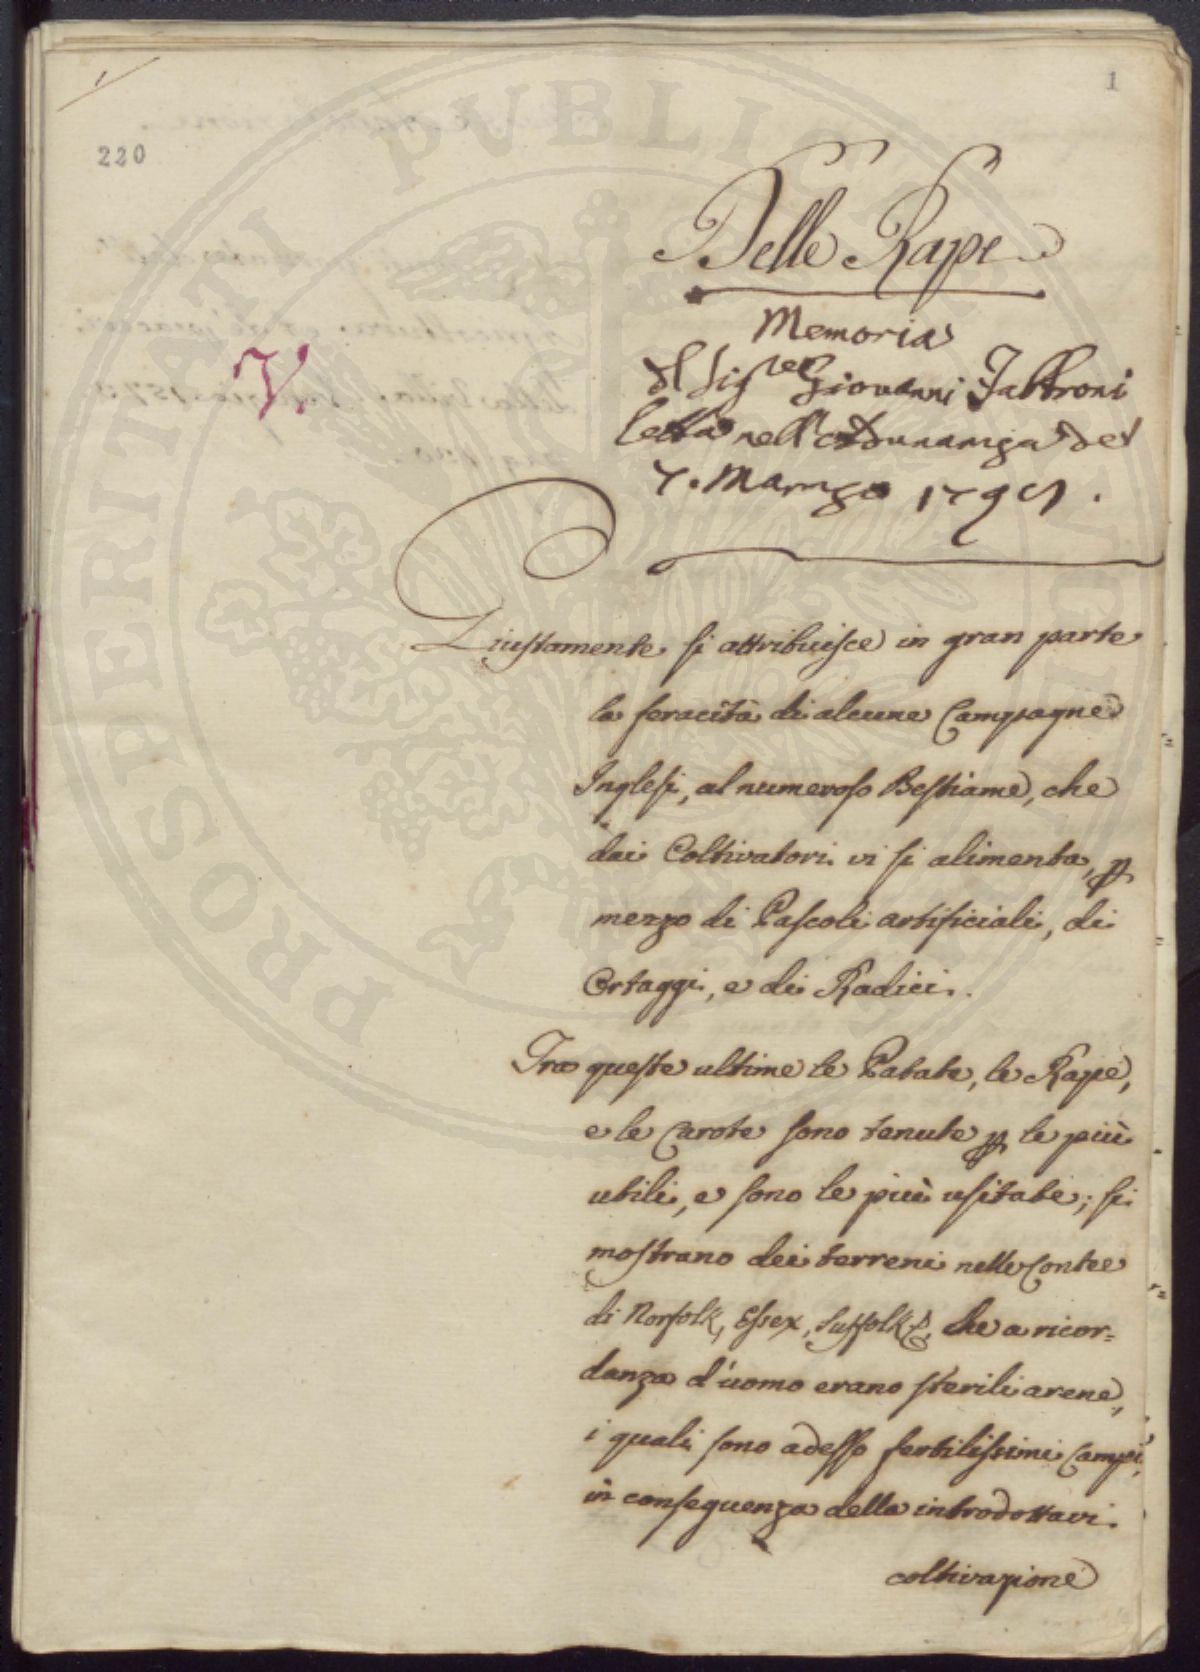 1
1
220
Delle Rape
Memoria
del Sig.re Giovanni Fabbroni
letta nell'Adunanza del
7. Marzo 1791.
V.
Giustamente si attribuisce in gran parte
la feracità di alcune Campagne
Inglesi, al numeroso Bestiame, che
dai Coltivatori vi si alimenta, p
mezzo di Pascoli artificiali, di
Ortaggi, e di Radici.
Tra queste ultime le Patate, le Rape,
e le Carote sono tenute p le più
utili, e sono le più usitate; si
mostrano dei terreni nelle Contee
di Norfolk, Essex, Suffolk &, che a ricor=
danza d'uomo erano sterili arene,
i quali sono adesso fertilissimi Campi,
in conseguenza della introdottavi
coltivazione
PROSPERITATI PUBLICAE AUGENDAE